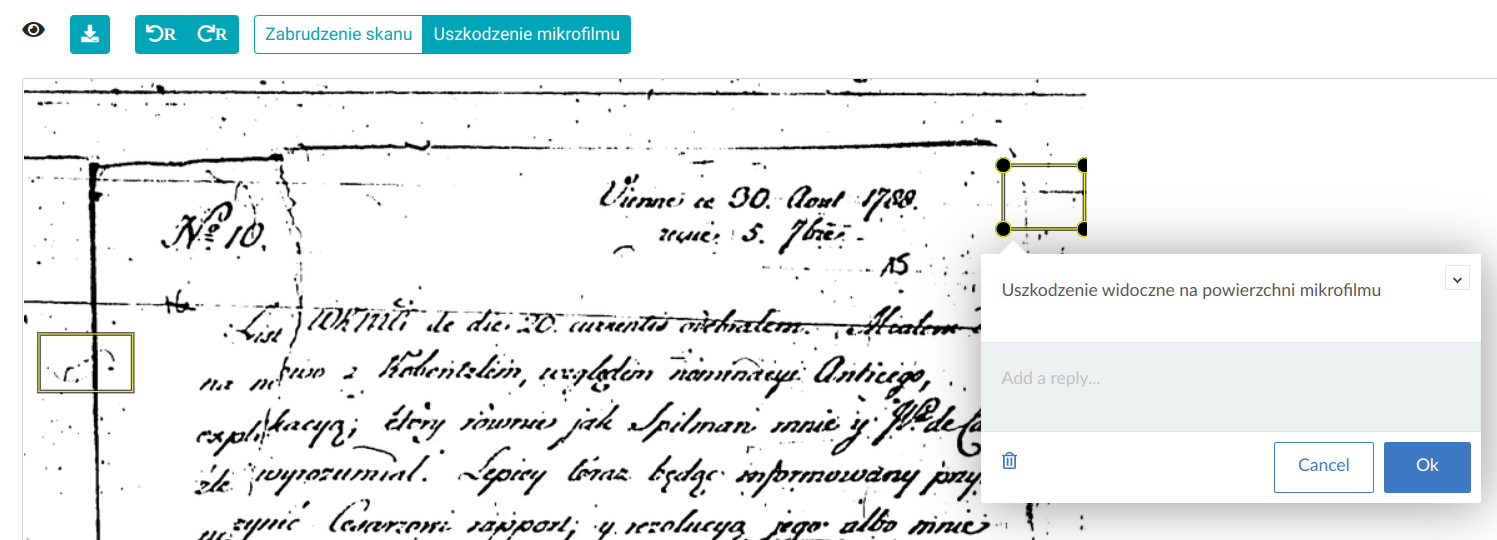 R R Zabrudzenie skanu Uszkodzenie mikrofilmu
Vienne ce 30. Aout 1788.
No 10.
reçue 5. 7bre
15
16
List WKMći de die 20. currentis odebrałem.
na no z Kobentzlem, względem nominacyi Anticego,
explikacyą; który równie jak Spilman mnie y
źle wyrozumiał. Lepiey teraz będąc informowany przy
Cesarzowi rapport; y rezolucyą jego albo mnie
Uszkodzenie widoczne na powierzchni mikrofilmu
Add a reply...
Cancel Ok